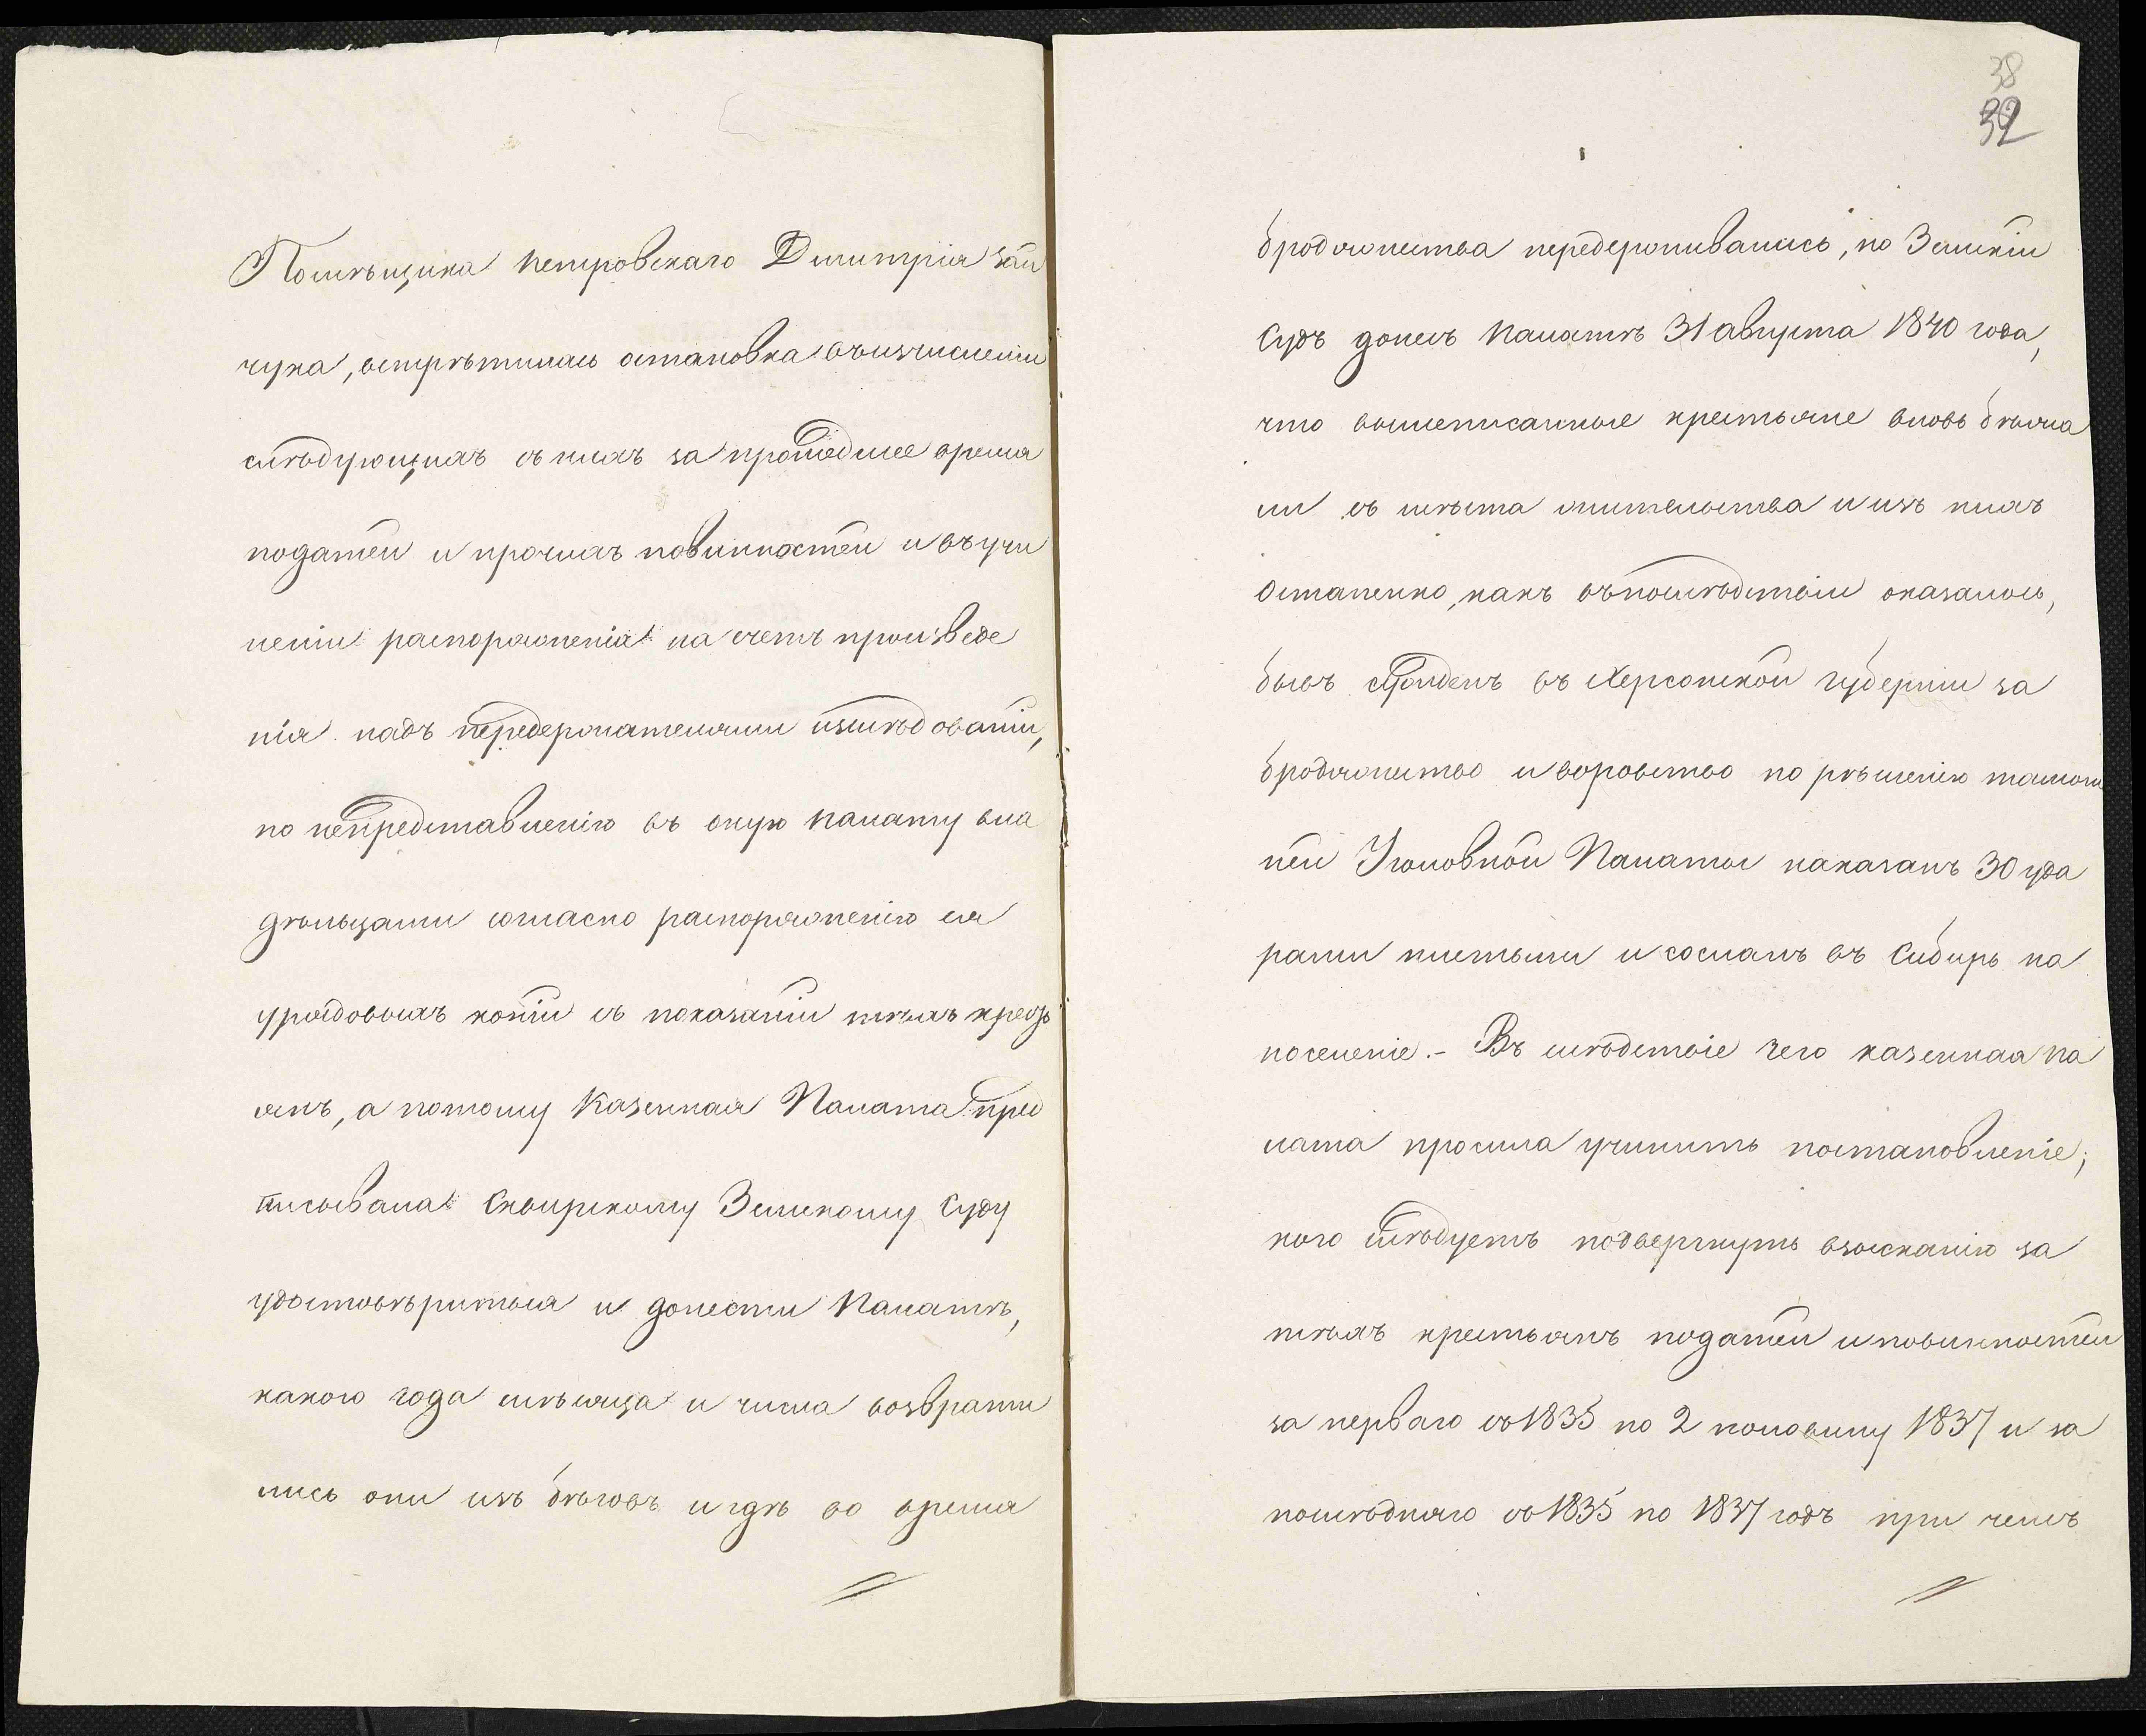 Помѣщика Петровскаго Димитрія Зай
чука, встрѣтилась остановка въ изчисленіи
слѣдующихъ съ нихъ за прошедшее время
податей и прочихъ повинностей и въ учи
неніи распоряженія на счетъ произведе
нія надъ передержателями изслѣдованій,
по непредставленію въ оную палату вла
дѣльцами согласно распоряженію ея
урядовыхъ копій съ показаній тѣхъ кресть
янъ, а потому Казенная Палата пред
писывала Сквирскому Земскому Суду
удостовѣриться и донести Палатѣ,
какого года мѣсяца и числа возврати
лись они изъ бѣговъ и гдѣ во время
38
32
бродяжества передерживались, но Земскій
Судъ донесъ Палатѣ 31 августа 1840 года,
что вышеписанные крестьяне вновь бѣжа
ли съ мѣста жительства и изъ нихъ
Остапенко, какъ въ послѣдствіи оказалось,
бывъ сужденъ въ Херсонской губерніи за
бродяжество и воровство по рѣшенію тамош
ней Уголовной Палаты наказанъ 30 уда
рами плетьми и сосланъ въ Сибирь на
поселеніе.- Въ слѣдствіе чего казенная па
лата просила учинить постановленіе;
кого слѣдуетъ подвергнуть взысканію за
тѣхъ крестьянъ податей и повинностей
за перваго съ 1835 по 2 половину 1837 и за
послѣдняго съ 1835 по 1837 годъ при чемъ